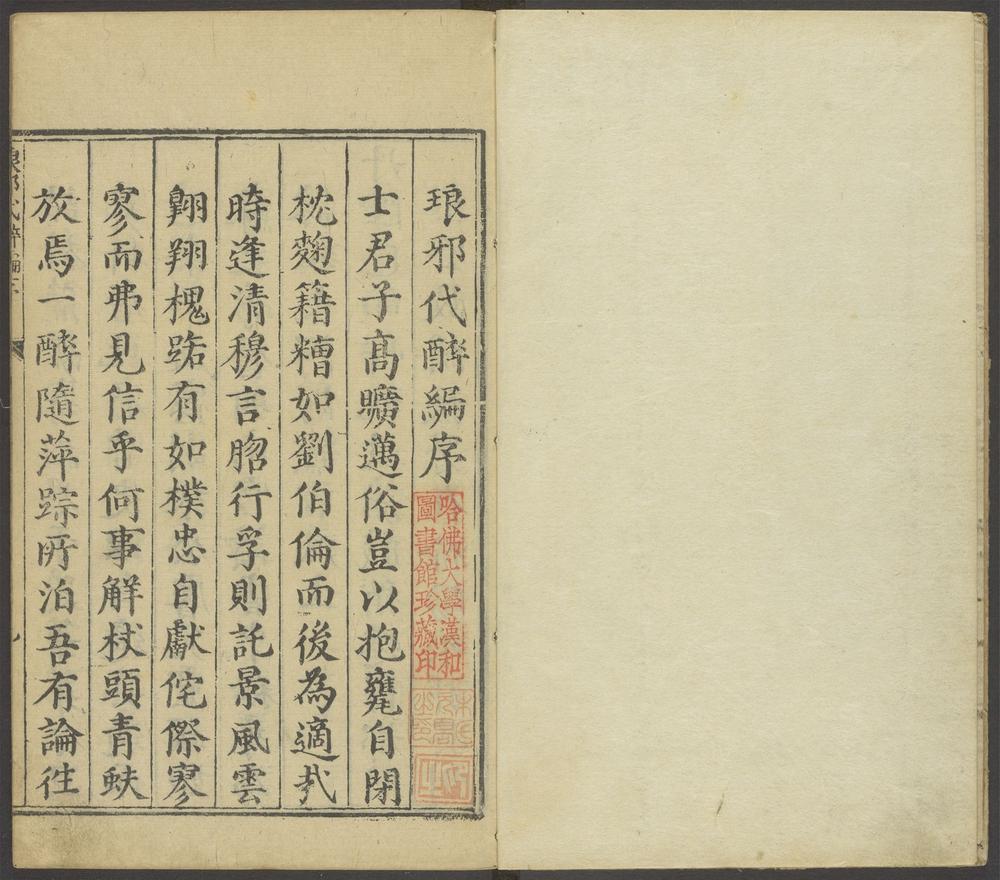 琅邪代醉編序
哈佛大學漢和
圖書館珍藏印
士君子高曠邁俗豈以抱甕自閉
枕麴籍糟如劉伯倫而後為適㢤
時逢清穆言脗行孚則託景風雲
翺翔槐路有如樸忠自獻侘傺寥
寥而弗見信乎何事解杖頭青蚨
放焉一醉隨萍踪所泊吾有論徃